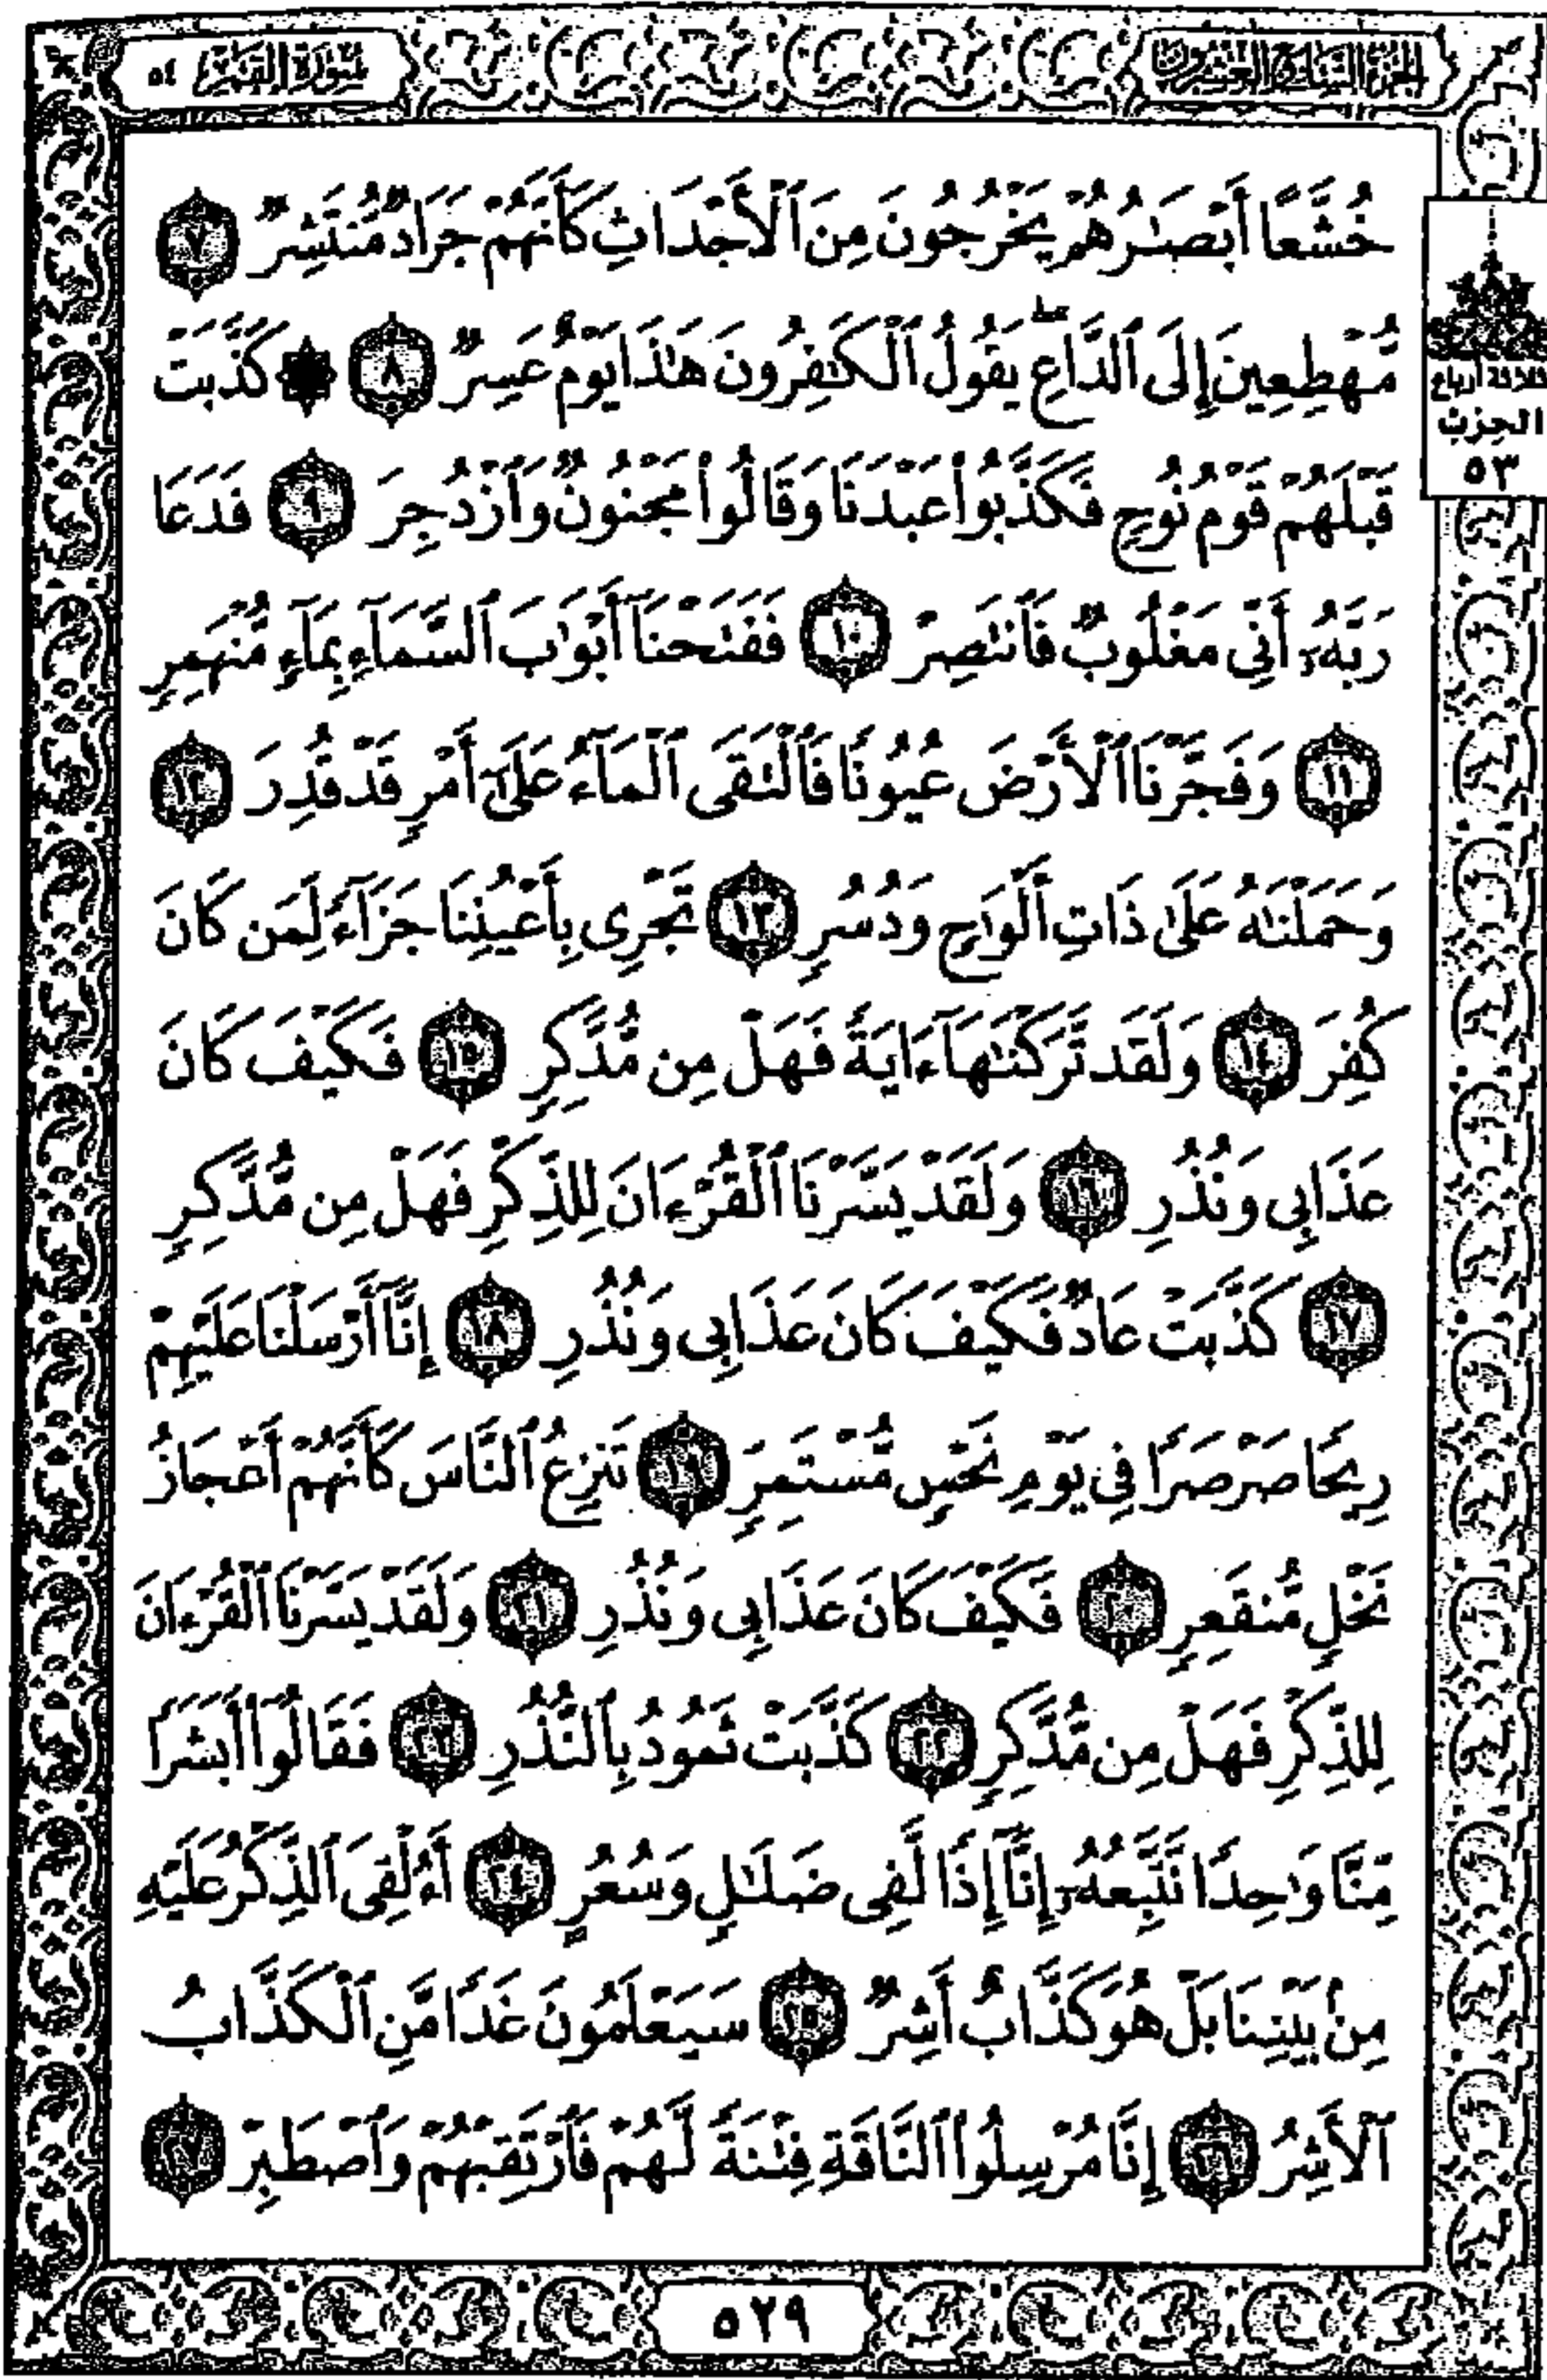 الجزء السابع والعشرون
سورة القمر ٥٤
خُشَّعًا أَبْصَٰرُهُمْ يَخْرُجُونَ مِنَ ٱلْأَجْدَاثِ كَأَنَّهُمْ جَرَادٌ مُّنتَشِرٌ ٧
مُّهْطِعِينَ إِلَى ٱلدَّاعِ ۖ يَقُولُ ٱلْكَٰفِرُونَ هَٰذَا يَوْمٌ عَسِرٌ ٨ ۞ كَذَّبَتْ
ثلاثة أرباع
الحزب
٥٣
قَبْلَهُمْ قَوْمُ نُوحٍ فَكَذَّبُوا۟ عَبْدَنَا وَقَالُوا۟ مَجْنُونٌ وَٱزْدُجِرَ ٩ فَدَعَا
رَبَّهُۥٓ أَنِّى مَغْلُوبٌ فَٱنتَصِرْ ١٠ فَفَتَحْنَآ أَبْوَٰبَ ٱلسَّمَآءِ بِمَآءٍ مُّنْهَمِرٍ
١١ وَفَجَّرْنَا ٱلْأَرْضَ عُيُونًا فَٱلْتَقَى ٱلْمَآءُ عَلَىٰٓ أَمْرٍ قَدْ قُدِرَ ١٢
وَحَمَلْنَٰهُ عَلَىٰ ذَاتِ أَلْوَٰحٍ وَدُسُرٍ ١٣ تَجْرِى بِأَعْيُنِنَا جَزَآءً لِّمَن كَانَ
كُفِرَ ١٤ وَلَقَد تَّرَكْنَٰهَآ ءَايَةً فَهَلْ مِن مُّدَّكِرٍ ١٥ فَكَيْفَ كَانَ
عَذَابِى وَنُذُرِ ١٦ وَلَقَدْ يَسَّرْنَا ٱلْقُرْءَانَ لِلذِّكْرِ فَهَلْ مِن مُّدَّكِرٍ
١٧ كَذَّبَتْ عَادٌ فَكَيْفَ كَانَ عَذَابِى وَنُذُرِ ١٨ إِنَّآ أَرْسَلْنَا عَلَيْهِمْ
رِيحًا صَرْصَرًا فِى يَوْمِ نَحْسٍ مُّسْتَمِرٍّ ١٩ تَنزِعُ ٱلنَّاسَ كَأَنَّهُمْ أَعْجَازُ
نَخْلٍ مُّنقَعِرٍ ٢٠ فَكَيْفَ كَانَ عَذَابِى وَنُذُرِ ٢١ وَلَقَدْ يَسَّرْنَا ٱلْقُرْءَانَ
لِلذِّكْرِ فَهَلْ مِن مُّدَّكِرٍ ٢٢ كَذَّبَتْ ثَمُودُ بِٱلنُّذُرِ ٢٣ فَقَالُوٓا۟ أَبَشَرًا
مِّنَّا وَٰحِدًا نَّتَّبِعُهُۥٓ إِنَّآ إِذًا لَّفِى ضَلَٰلٍ وَسُعُرٍ ٢٤ أَءُلْقِىَ ٱلذِّكْرُ عَلَيْهِ
مِنۢ بَيْنِنَا بَلْ هُوَ كَذَّابٌ أَشِرٌ ٢٥ سَيَعْلَمُونَ غَدًا مَّنِ ٱلْكَذَّابُ
ٱلْأَشِرُ ٢٦ إِنَّا مُرْسِلُوا۟ ٱلنَّاقَةِ فِتْنَةً لَّهُمْ فَٱرْتَقِبْهُمْ وَٱصْطَبِرْ ٢٧
٥٢٩